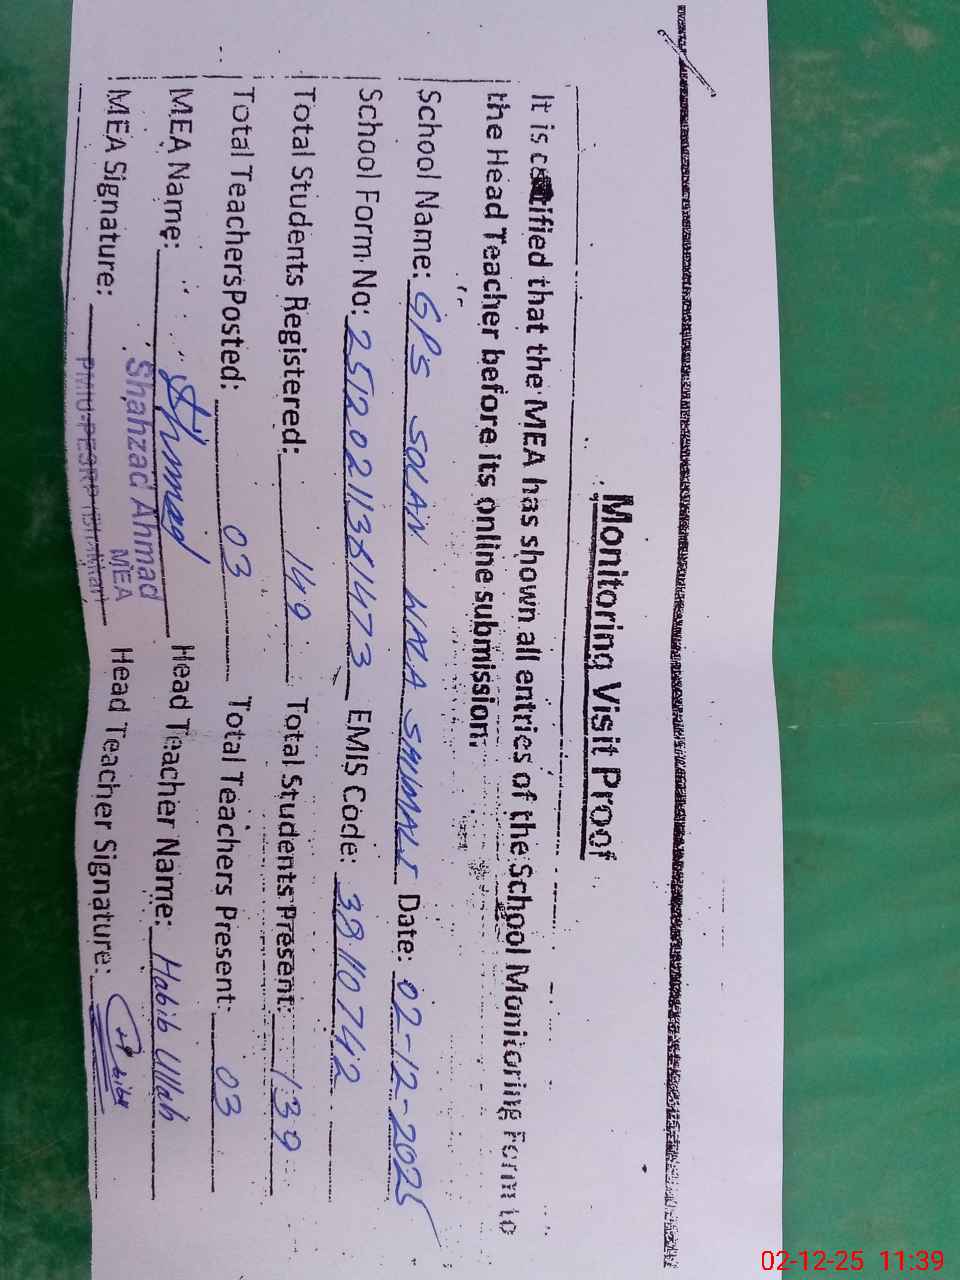 Monitoring Visit Proof
It is certified that the MEA has shown all entries of the School Monitoring Form to
the Head Teacher before its online submission.
School Name: GPS SOLAN WALA SHUMALI Date: 02-12-2025
School Form No: EMIS Code: 38110742
Total Students Registered: 149 Total Students Present: 139
Total TeachersPosted: 03 Total Teachers Present: 03
MEA Name: Ahmad Head Teacher Name: Habib Ullah
Shahzad Ahmad
MEA
MEA Signature: Head Teacher Signature: Habib
PMIU-PESRP (Bhakkar)
02-12-25 11:39